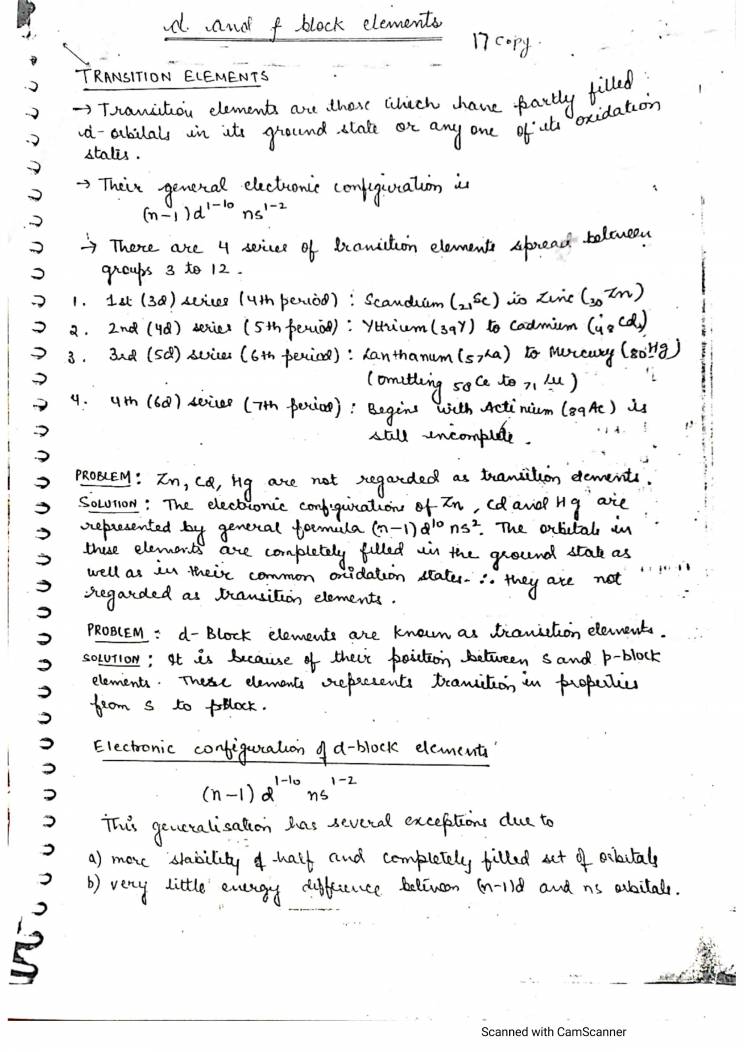 d and f block elements
17 copy.
TRANSITION ELEMENTS
→ Transition elements are those which have partly filled
d-orbitals in its ground state or any one of its oxidation
states.
→ Their general electronic configuration is
(n-1)d¹⁻¹⁰ ns¹⁻²
→ There are 4 series of transition elements spread between
groups 3 to 12.
1. 1st (3d) series (4th period) : Scandium (₂₁Sc) to Zinc (₃₀Zn)
2. 2nd (4d) series (5th period) : Yttrium (39Y) to Cadmium (48Cd)
3. 3rd (5d) series (6th period) : Lanthanum (57La) to Mercury (80Hg)
(omitting 58Ce to 71Lu)
4. 4th (6d) series (7th period) : Begins with Actinium (89Ac) is
still incomplete.
PROBLEM : Zn, Cd, Hg are not regarded as transition elements.
SOLUTION : The electronic configurations of Zn, Cd and Hg are
represented by general formula (n-1)d¹⁰ ns². The orbitals in
these elements are completely filled in the ground state as
well as in their common oxidation states. ∴ they are not
regarded as transition elements.
PROBLEM : d-Block elements are known as transition elements.
SOLUTION : It is because of their position between s and p-block
elements. These elements represents transition in properties
from s to pblock.
Electronic configuration of d-block elements
(n-1)d¹⁻¹⁰ ns¹⁻²
This generalisation has several exceptions due to
a) more stability of half and completely filled set of orbitals
b) very little energy difference between (n-1)d and ns orbitals.
Scanned with CamScanner